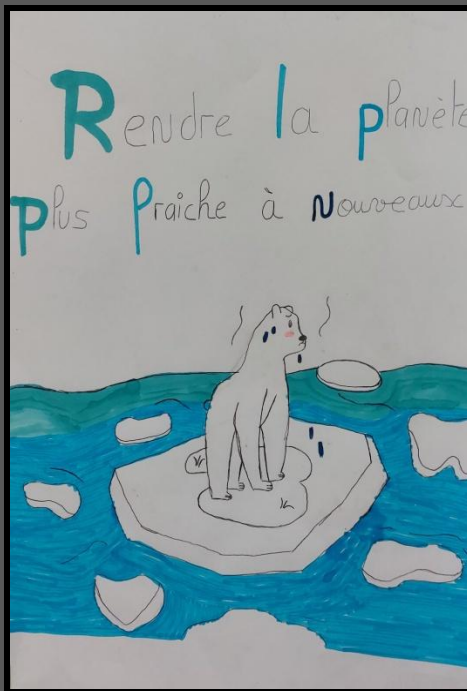 Rendre la planète
plus fraiche à Nouveaux